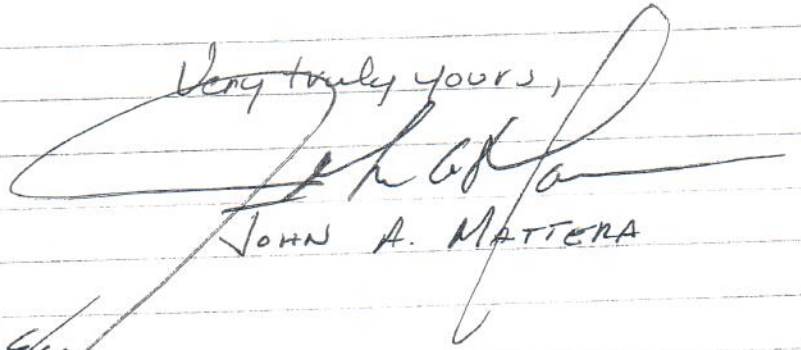 Very truly yours,
JOHN A. MATTERA